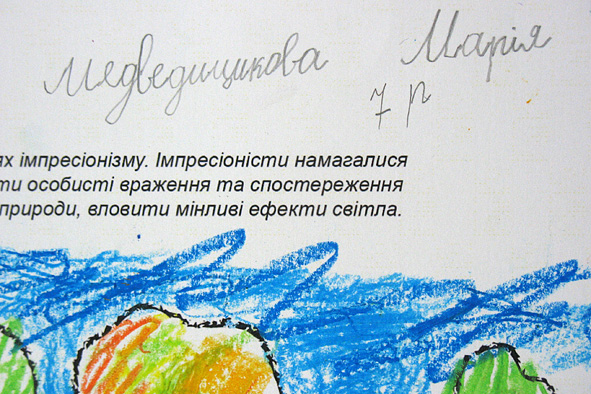 Медведицикова Марія
7 р
ях імпресіонізму. Імпресіоністи намагалися
ти особисті враження та спостереження
природи, вловити мінливі ефекти світла.